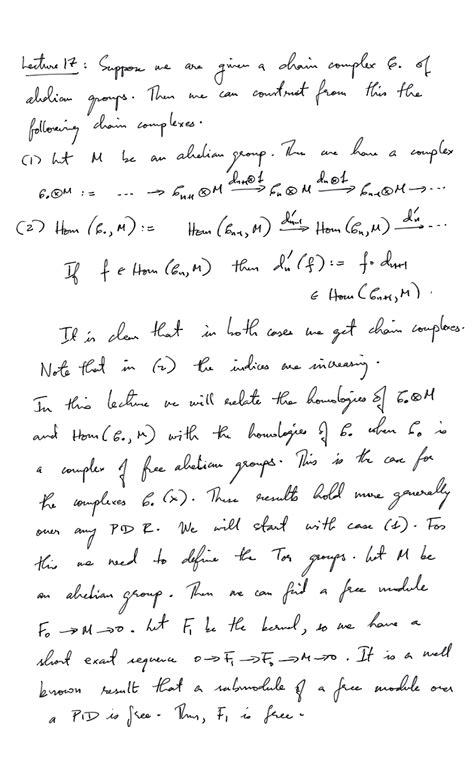 Lecture 17 : Suppose we are given a chain complex C. of
abelian groups. Then we can construct from this the
following chain complexes.
(1) Let M be an abelian group. Then we have a complex
C.⊗M := ... → Cₙ₊₁⊗M --dₙ₊₁⊗1--> Cₙ⊗M --dₙ⊗1--> Cₙ₋₁⊗M → ...
(2) Hom (C., M) := Hom (Cₙ₋₁, M) --d'ₙ₋₁--> Hom (Cₙ, M) --d'ₙ--> ...
If f ∈ Hom (Cₙ, M) then d'ₙ(f) := f∘dₙ₊₁
∈ Hom (Cₙ₊₁, M).
It is clear that in both cases we get chain complexes.
Note that in (2) the indices are increasing.
In this lecture we will relate the homologies of C.⊗M
and Hom(C., M) with the homologies of C. when C. is
a complex of free abelian groups. This is the case for
the complexes C.(X). These results hold more generally
over any PID R. We will start with case (1). For
this we need to define the Tor groups. Let M be
an abelian group. Then we can find a free module
F₀ → M → 0. Let F₁ be the kernel, so we have a
short exact sequence 0 → F₁ → F₀ → M → 0. It is a well
known result that a submodule of a free module over
a PID is free. Thus, F₁ is free.